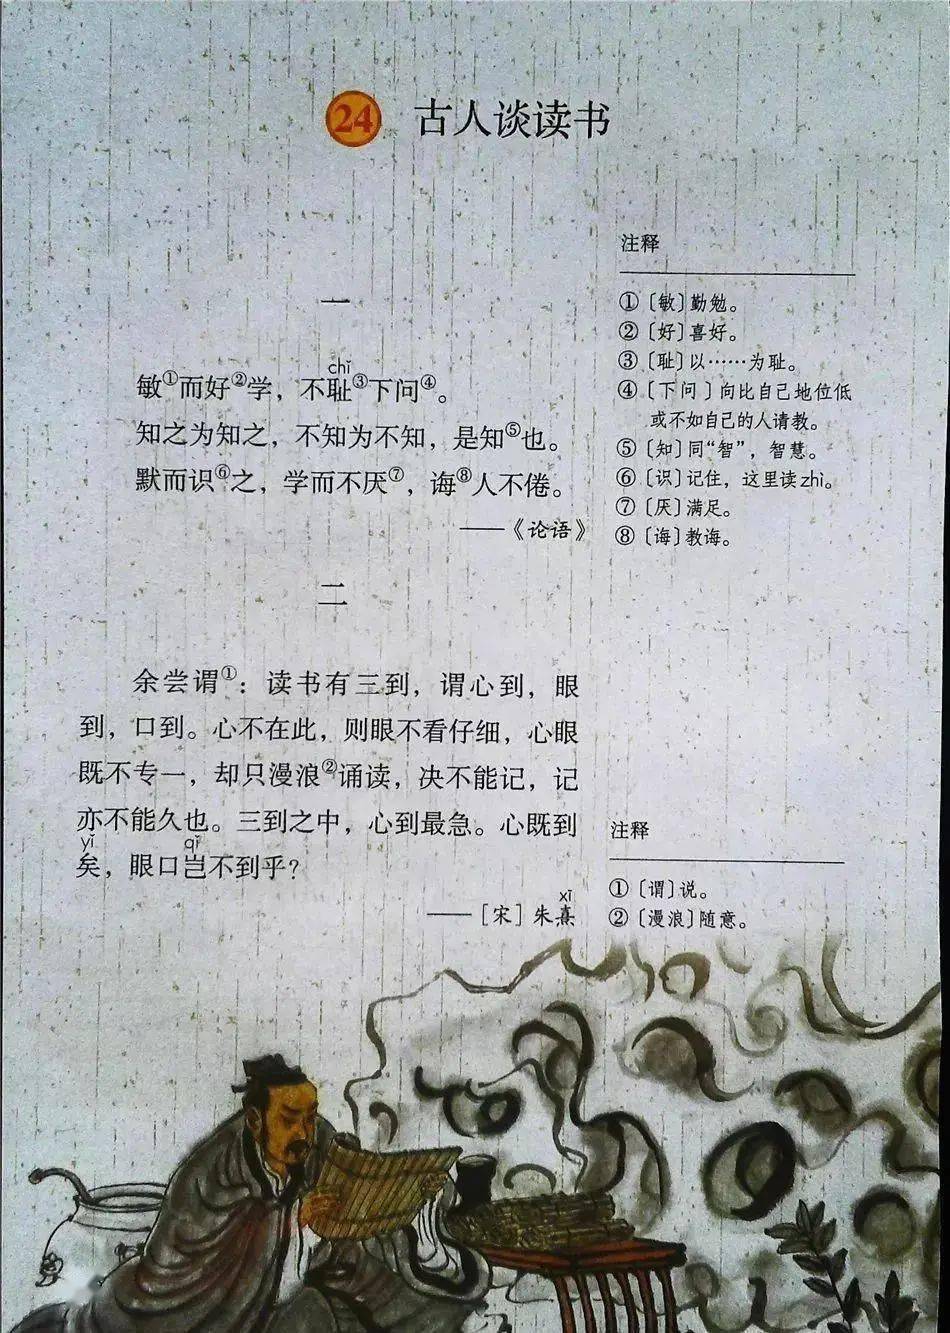 24 古人谈读书
一
chǐ
敏①而好②学，不耻③下问④。
知之为知之，不知为不知，是知⑤也。
默而识⑥之，学而不厌⑦，诲⑧人不倦。
——《论语》
注释
①〔敏〕勤勉。
②〔好〕喜好。
③〔耻〕以……为耻。
④〔下问〕向比自己地位低
或不如自己的人请教。
⑤〔知〕同“智”，智慧。
⑥〔识〕记住，这里读zhì。
⑦〔厌〕满足。
⑧〔诲〕教诲。
二
余尝谓①：读书有三到，谓心到，眼
到，口到。心不在此，则眼不看仔细，心眼
既不专一，却只漫浪②诵读，决不能记，记
亦不能久也。三到之中，心到最急。心既到
yǐ qǐ
矣，眼口岂不到乎？
xī
——［宋］朱熹
注释
①〔谓〕说。
②〔漫浪〕随意。